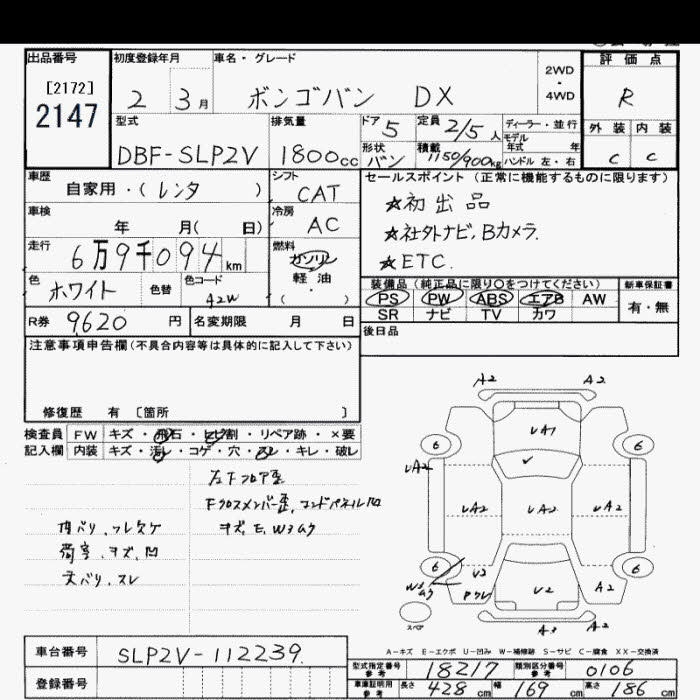 出品番号
[2172]
2147
初度登録年月
2 3月
車名・グレード
ボンゴバン DX
2WD
・
4WD
評価点
R
外装 内装
C C
型式
DBF-SLP2V
排気量
1800cc
ドア 5
形状 バン
定員 2/5人
積載 1150/900kg
ディーラー・並行
モデル
年式 年
ハンドル 左・右
車歴
自家用・(レンタ )
シフト
CAT
車検
年 月( 日)
冷房
AC
走行
6万9千094km
燃料
ガソリン
軽油
( ・ )
色
ホワイト
色替
色コード
42W
R券 9620 円
名変期限 月 日
セールスポイント (正常に機能するものに限ります)
☆初出品
☆社外ナビ,Bカメラ.
☆ETC.
装備品(純正品に限り○をつけてください)
PS PW ABS エアB AW
SR ナビ TV カワ
新車保証書
有・無
後日品
注意事項申告欄(不具合内容等は具体的に記入して下さい)
修復歴 有 〔箇所 〕
検査員 FW キズ・飛石・ヒビ割・リペア跡・×要
記入欄 内装 キズ・汚レ・コゲ・穴・スレ・キレ・破レ
左下フロア歪
Fクロスメンバー歪,コンドパネル凹
キズ,E,W3
内バリ,フレ欠ケ
荷室,キズ,凹
天バリ,スレ
A2 A2
UA1
6 6
UA2
UA2 UA2 UA2 A2
6 6
W3 U2 U2 A2
スペア
A3 A2
A-キズ E-エクボ U-凹み W-補修跡 S-サビ C-腐食 XX-交換済
車台番号 SLP2V-112239.
登録番号
型式指定番号 参考 18217 類別区分番号 参考 0106
車庫証明用 参考 長さ 428cm 幅 169cm 高さ 86cm